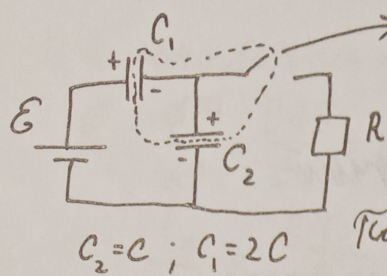 C₁
+
-
ℰ
+
-
C₂
R
C₂ = C ; C₁ = 2C